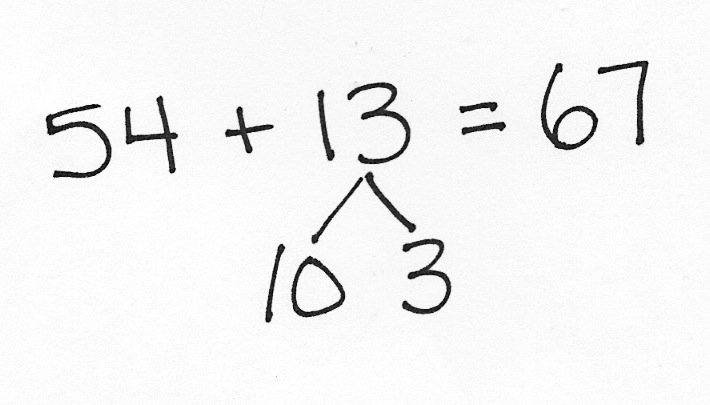 54 + 13 = 67
10 3